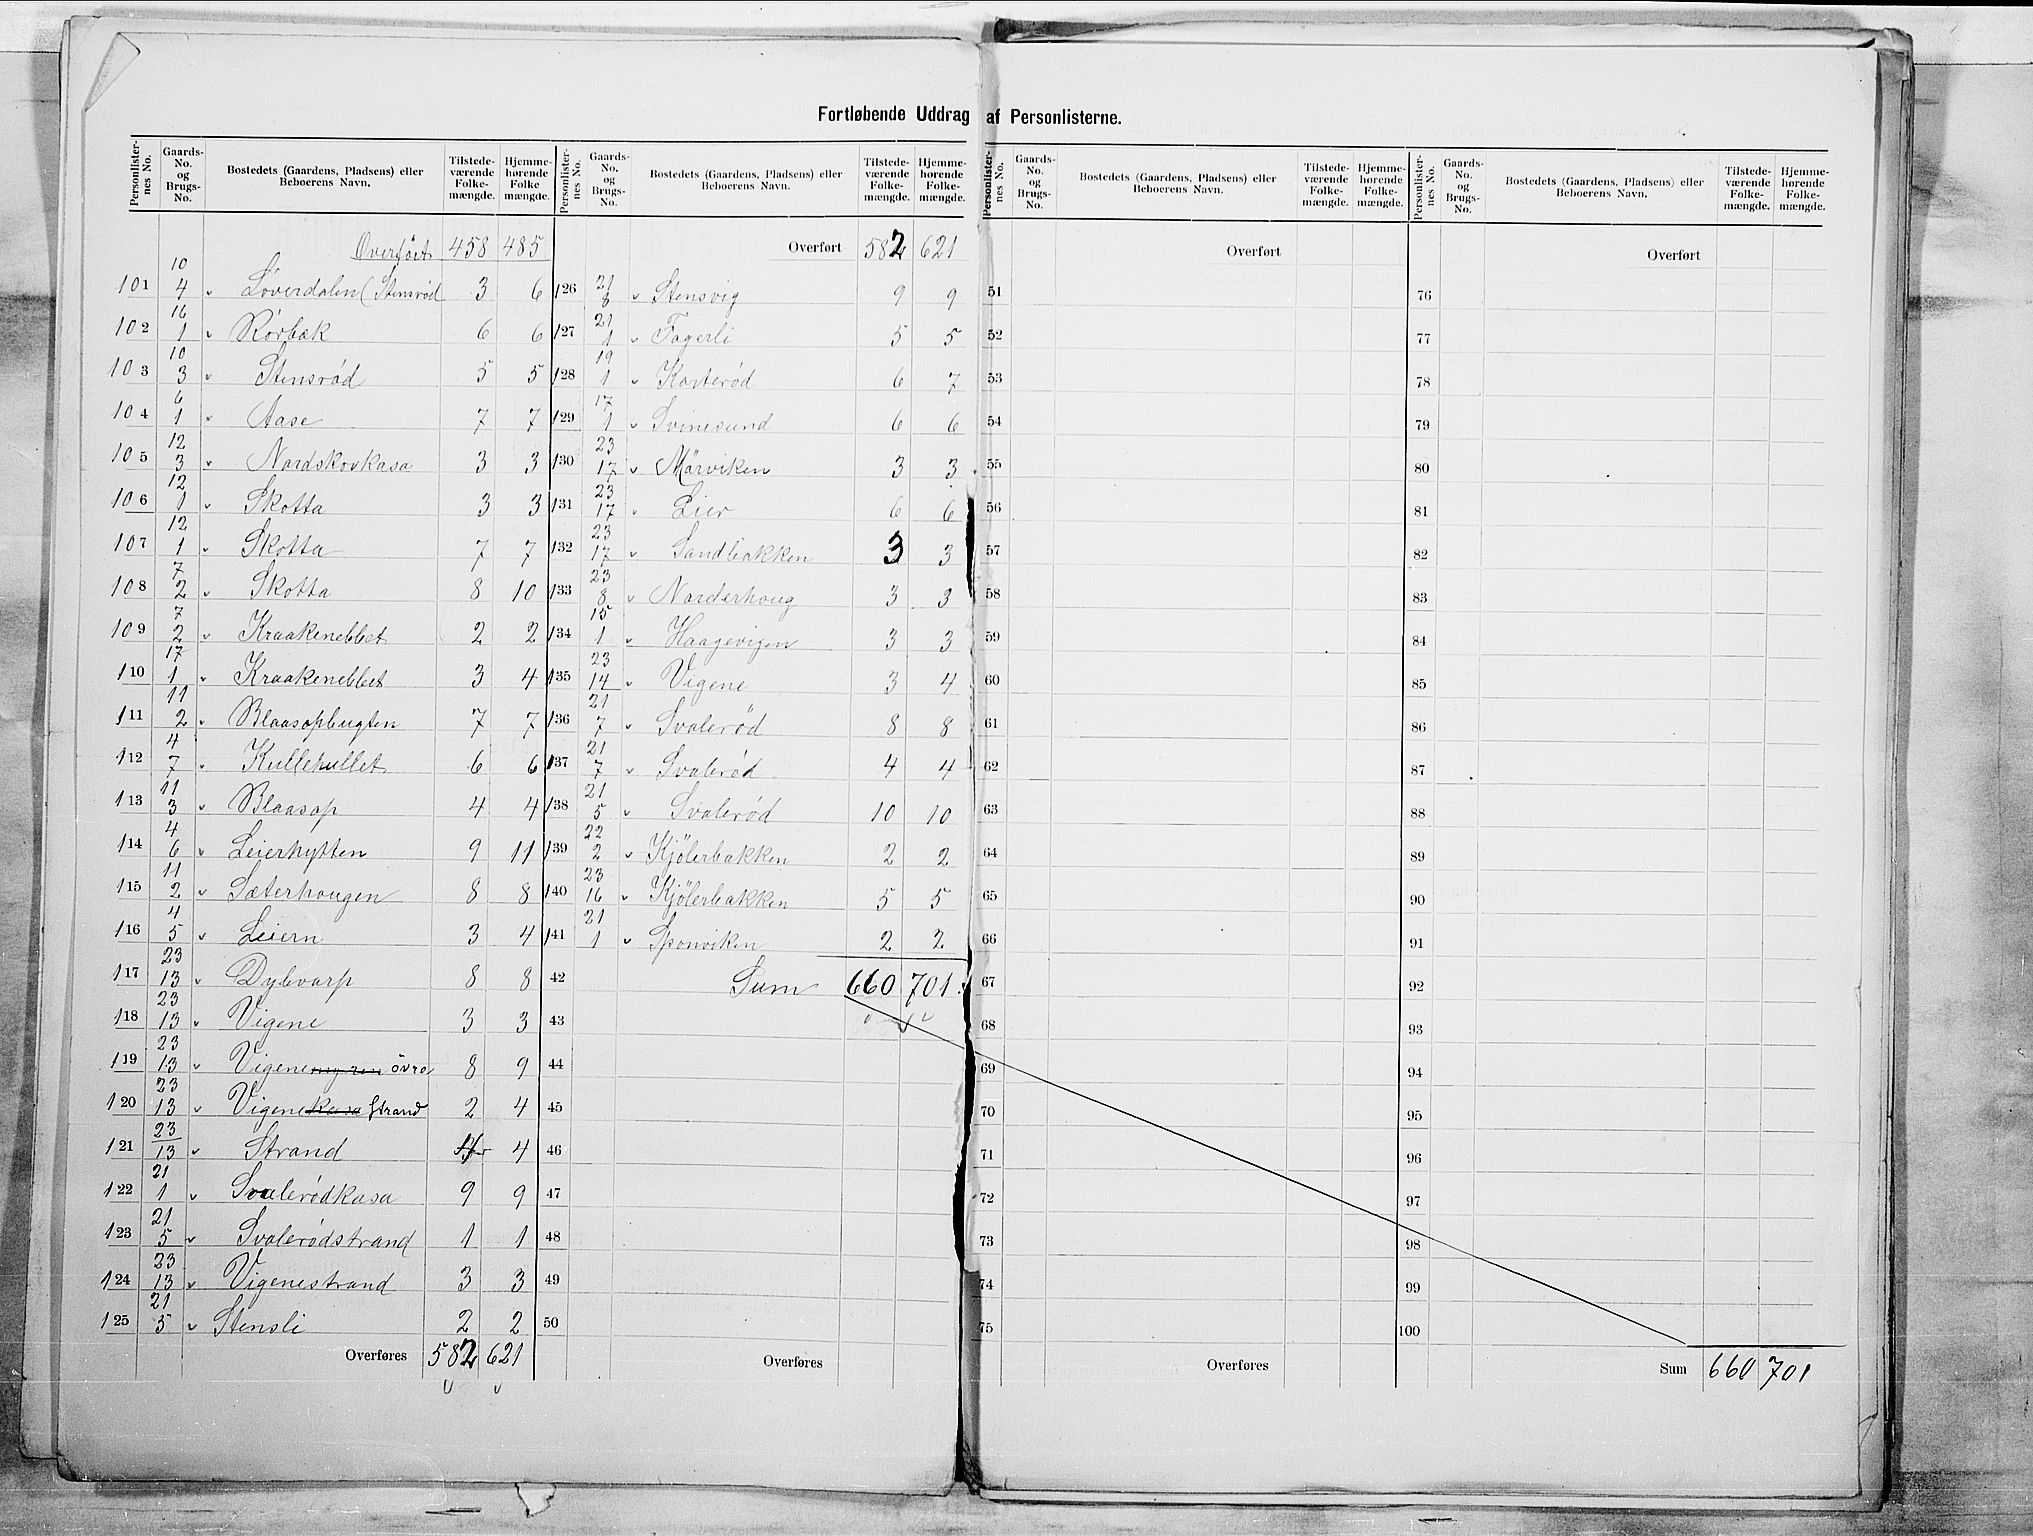 Fortløbende Uddrag af Personlisterne.
Personlister-nes No. Gaards-No. og Brugs-No. Bostedets (Gaardens, Pladsens) eller Beboerens Navn. Tilstede-værende Folke-mængde. Hjemme-hørende Folke mængde.
Overført 458 485
101 10/4 v Löverdalen (Stensröd 3 6
102 16/1 v Rörbæk 6 6
103 10/3 v Stensröd 5 5
104 6/1 v Aase 7 7
105 12/3 v Nordskovkasa 3 3
106 12/1 v Skotta 3 3
107 12/1 v Skotta 7 7
108 7/2 v Skotta 8 10
109 7/2 v Kraakenebbet 2 2
110 17/1 v Kraakenebbet 3 4
111 11/2 v Blaasopbugten 7 7
112 4/7 v Kullehullet 6 6
113 11/3 v Blaasop 4 4
114 4/6 v Leierhytten 9 11
115 11/2 v Sæterhougen 8 8
116 4/5 v Leiern 3 4
117 23/13 v Dybvarp 8 8
118 23/13 v Vigene 3 3
119 23/13 v Vigenemyren övre 8 9
120 23/13 v Vigenekasa Strand 2 4
121 23/13 v Strand 4
122 21/1 v Svalerödkasa 9 9
123 21/5 v Svalerödstrand 1 1
124 23/13 v Vigenestrand 3 3
125 21/5 v Stensli 2 2
Overføres 582 621
Personlister-nes No. Gaards-No. og Brugs-No. Bostedets (Gaardens, Pladsens) eller Beboerens Navn. Tilstede-værende Folke-mængde. Hjemme-hørende Folke-mængde.
Overført 582 621
126 21/8 v Stensvig 9 9
127 21/1 v Fagerli 5 5
128 19/1 v Korteröd 6 7
129 17/1 v Svinesund 6 6
130 23/17 v Mörviken 3 3
131 23/17 v Lier 6 6
132 23/17 v Sandbakken 3 3
133 23/8 v Norderhoug 3 3
134 15/1 v Haagevigen 3 3
135 23/14 v Vigene 3 4
136 21/7 v Svaleröd 8 8
137 21/7 v Svaleröd 4 4
138 21/5 v Svaleröd 10 10
139 22/2 v Kjölerbakken 2 2
140 23/16 v Kjölerbakken 5 5
141 21/1 v Sponviken 2 2
42 Sum 660 701
43
44
45
46
47
48
49
50
Overføres
Personlister-nes No. Gaards-No. og Brugs-No. Bostedets (Gaardens, Pladsens) eller Beboerens Navn. Tilstede-værende Folke-mængde. Hjemme-hørende Folke-mængde.
Overført
51
52
53
54
55
56
57
58
59
60
61
62
63
64
65
66
67
68
69
70
71
72
73
74
75
Overføres
Personlister-nes No. Gaards-No. og Brugs-No. Bostedets (Gaardens, Pladsens) eller Beboerens Navn. Tilstede-værende Folke-mængde. Hjemme-hørende Folke-mængde.
Overført
76
77
78
79
80
81
82
83
84
85
86
87
88
89
90
91
92
93
94
95
96
97
98
99
100
Sum 660 701